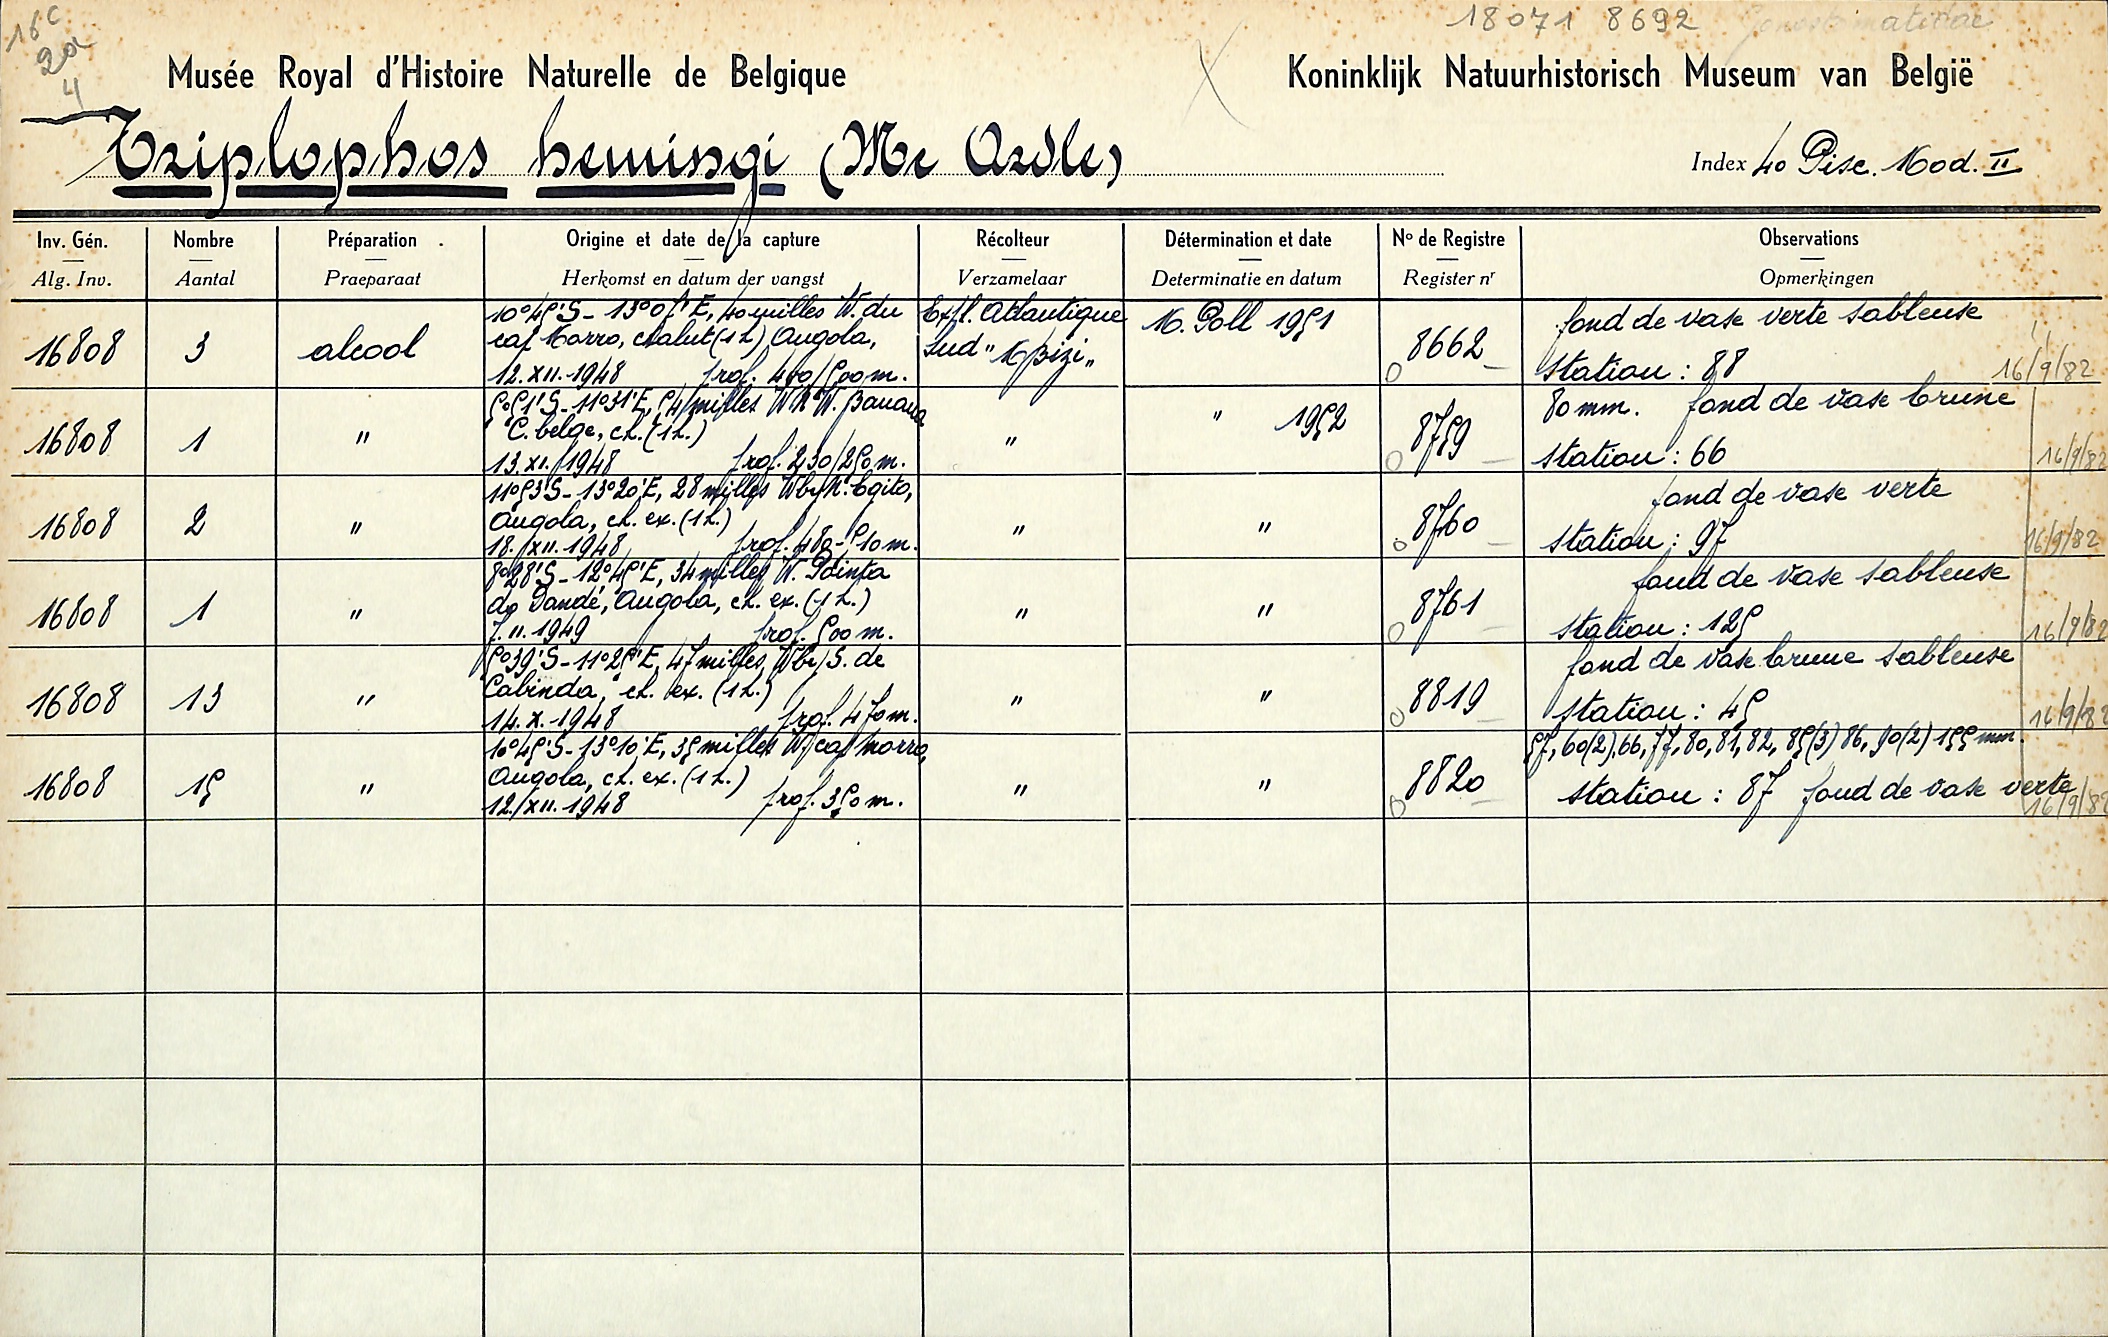 16c 18071 8692 Gonostomatidae
20a
4
Musée Royal d'Histoire Naturelle de Belgique Koninklijk Natuurhistorisch Museum van België
Triplophos hemingi (Mc Ardle) Index 40 Pisc. Mod. II
Inv. Gén. Nombre Préparation Origine et date de la capture Récolteur Détermination et date No de Registre Observations
Alg. Inv. Aantal Praeparaat Herkomst en datum der vangst Verzamelaar Determinatie en datum Register nr Opmerkingen
10°45'S - 13°07'E, 40 milles W. du Expl. Atlantique M. Poll 1951 fond de vase verte sableuse
16808 3 alcool cap Morro, chalut (1 h.) Angola, Sud "Mbizi" 8662
12.XII.1948 prof. 400/500 m. station : 88 16/9/82
5°51'S - 11°31'E, 54 milles W.N.W. Banana " 1952 80 mm. fond de vase brune
16808 1 " C. belge, ch. (1 h.) " 8759
13.XI.1948 prof. 230/250 m. station : 66 16/9/82
11°53'S - 13°20'E, 28 milles W by N. Egito, fond de vase verte
16808 2 " Angola, ch. ex. (1 h.) " " 8760
18.XII.1948 prof. 480-510 m. station : 97 16/9/82
8°28'S - 12°45'E, 34 milles W. Pointa fond de vase sableuse
16808 1 " do Dandé, Angola, ch. ex. (1 h.) " " 8761
7.II.1949 prof. 500 m. station : 125 16/9/82
5°39'S - 11°25'E, 47 milles W by S. de fond de vase brune sableuse
16808 13 " Cabinda, ch. ex. (1 h.) " " 8819
14.X.1948 prof. 470 m. station : 45 16/9/82
10°45'S - 13°10'E, 35 milles W. cap Morro, 57, 60(2), 66, 77, 80, 81, 82, 85(3) 86, 90(2) 155 mm.
16808 15 " Angola, ch. ex. (1 h.) " " 8820
12.XII.1948 prof. 350 m. station : 87 fond de vase verte 16/9/82